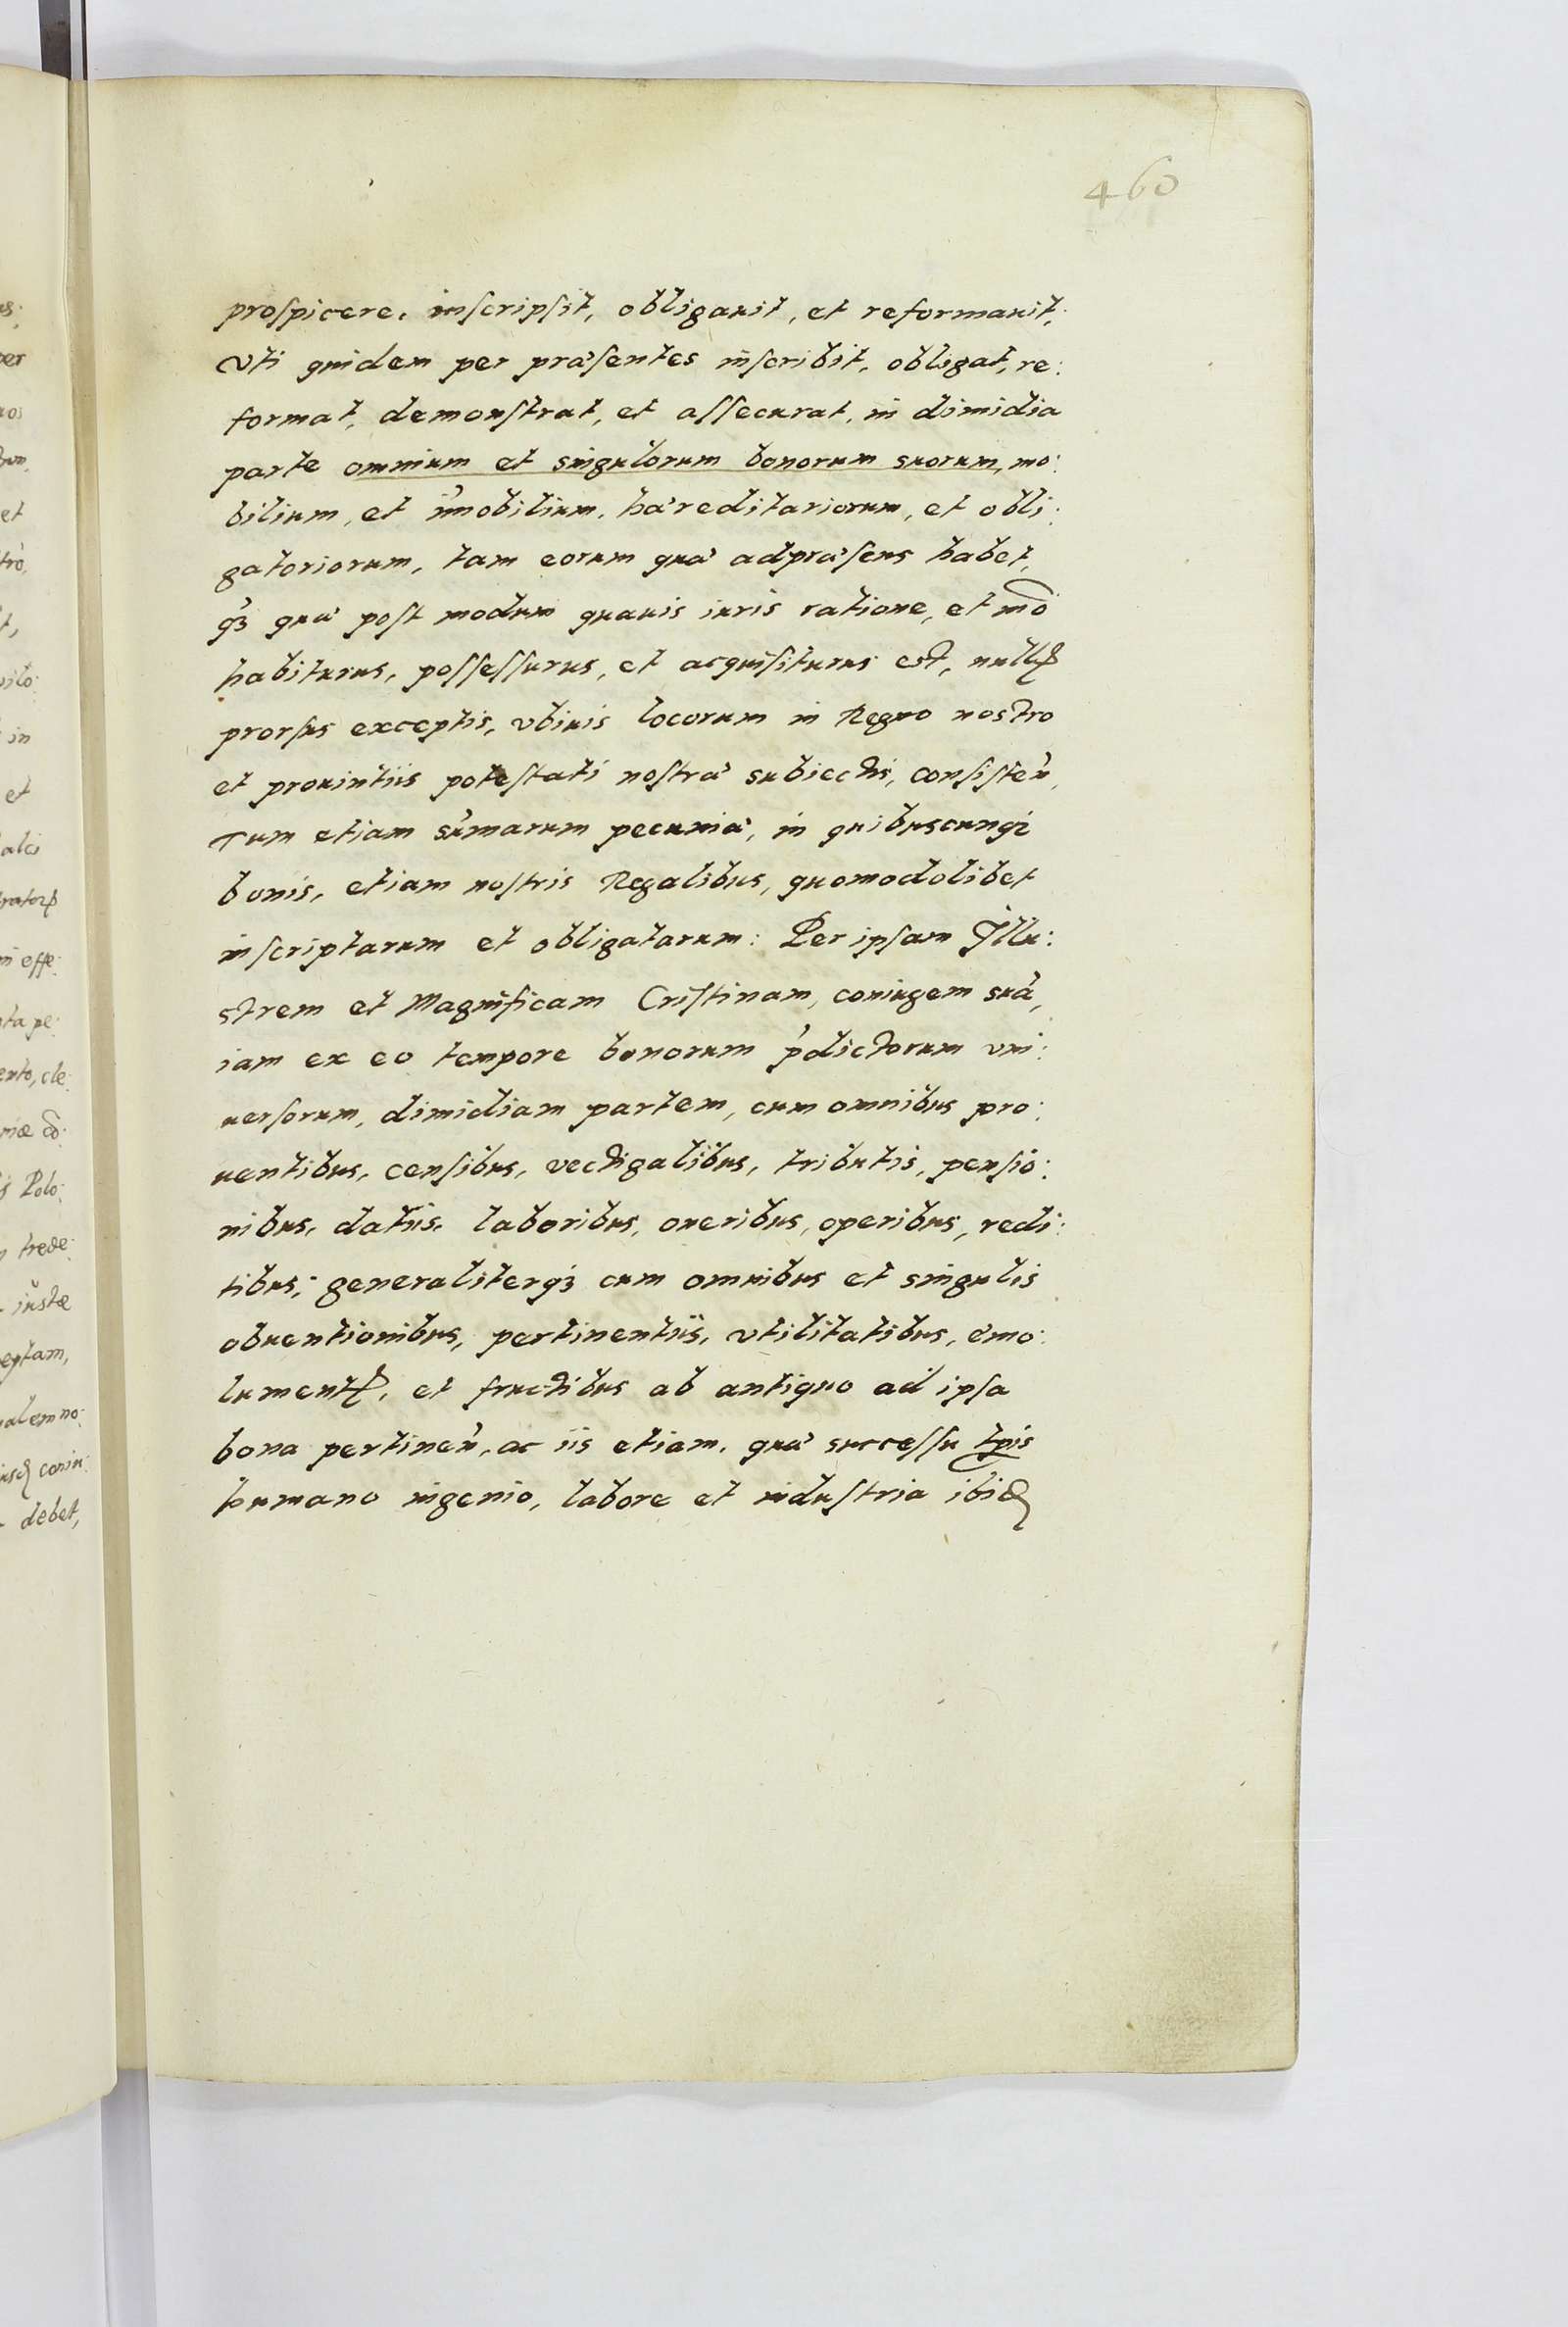 460
proſpicere, inſcripſit, obligauit, et reformauit,
vti quidem per præſentes inſcribit, obligat, re:
format, demonſtrat, et aſſecurat, in dimidia
parte omnium et singulorum bonorum suorum, mo:
bilium, et im̃obilium, hæreditariorum, et obli:
gatoriorum, tam eorum quæ adpræſens habet,
q̃ʒ quæ poſt modum quauis iuris ratione, et mõ
habiturus, poſſeſſurus, et acquiſiturus est, nullꝭ
prorſus exceptis, vbiuis locorum in Regno nostro
et prouintiis poteſtati noſtræ subiectis, conſiſteñ,
Tum etiam sum̃arum pecuniæ, in quibuscunqʒ
bonis, etiam noſtris Regalibus, quomodolibet
inſcriptarum et obligatarum: Per ipſam Illu:
strem et Magnificam Criſtinam, coniugem suã,
iam ex eo tempore bonorum p̃dictorum vni:
uerſorum, dimidiam partem, cum omnibus pro:
uentibus, cenſibus, vectigalibus, tributis, penſio:
nibus, datiis, laboribus, oneribus, operibus, redi:
tibus; generaliterqʒ cum omnibus et singulis
obuentionibus, pertinentiis, vtilitatibus, emo:
lumentꝭ, et fructibus ab antiquo ad ipſa
bona pertineñ, ac iis etiam, quæ succeſſu tp̃is
humano ingenio, labore et induſtria ibid